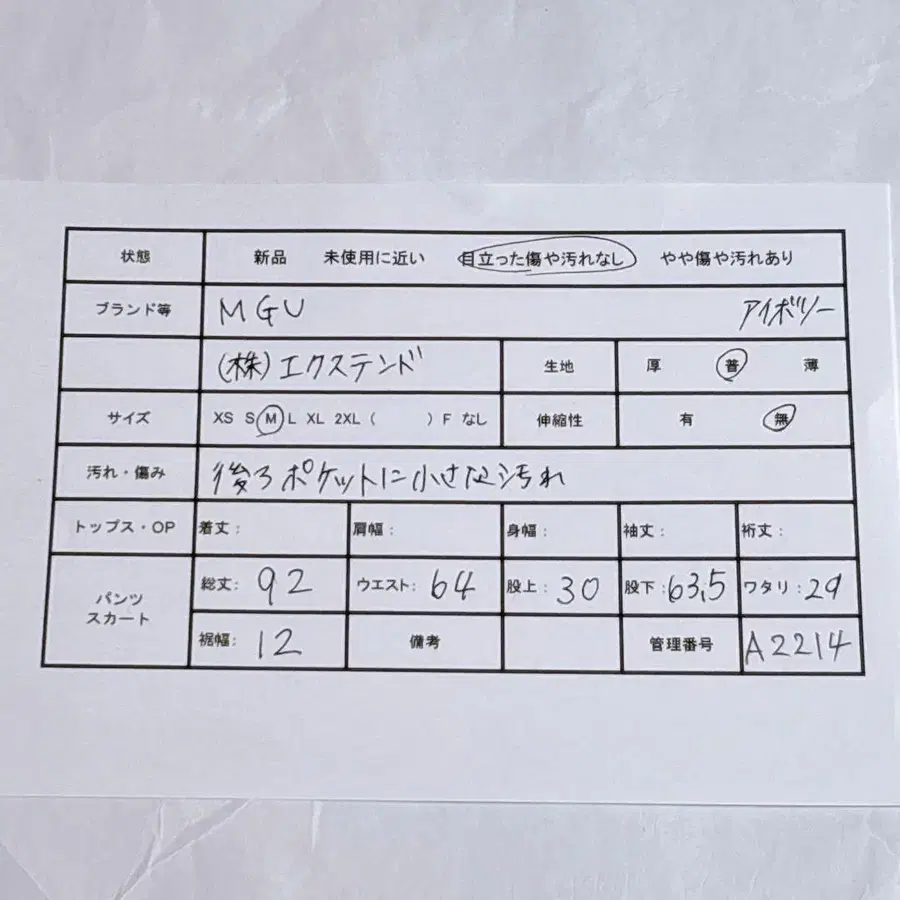 状態 新品 未使用に近い 目立った傷や汚れなし やや傷や汚れあり
ブランド等 MGU アイボリー
(株)エクステンド 生地 厚 普 薄
サイズ XS S M L XL 2XL ( ) F なし 伸縮性 有 無
汚れ・傷み 後ろポケットに小さな汚れ
トップス・OP 着丈: 肩幅: 身幅: 袖丈: 裄丈:
パンツ スカート 総丈: 92 ウエスト: 64 股上: 30 股下: 63.5 ワタリ: 29
裾幅: 12 備考 管理番号 A2214